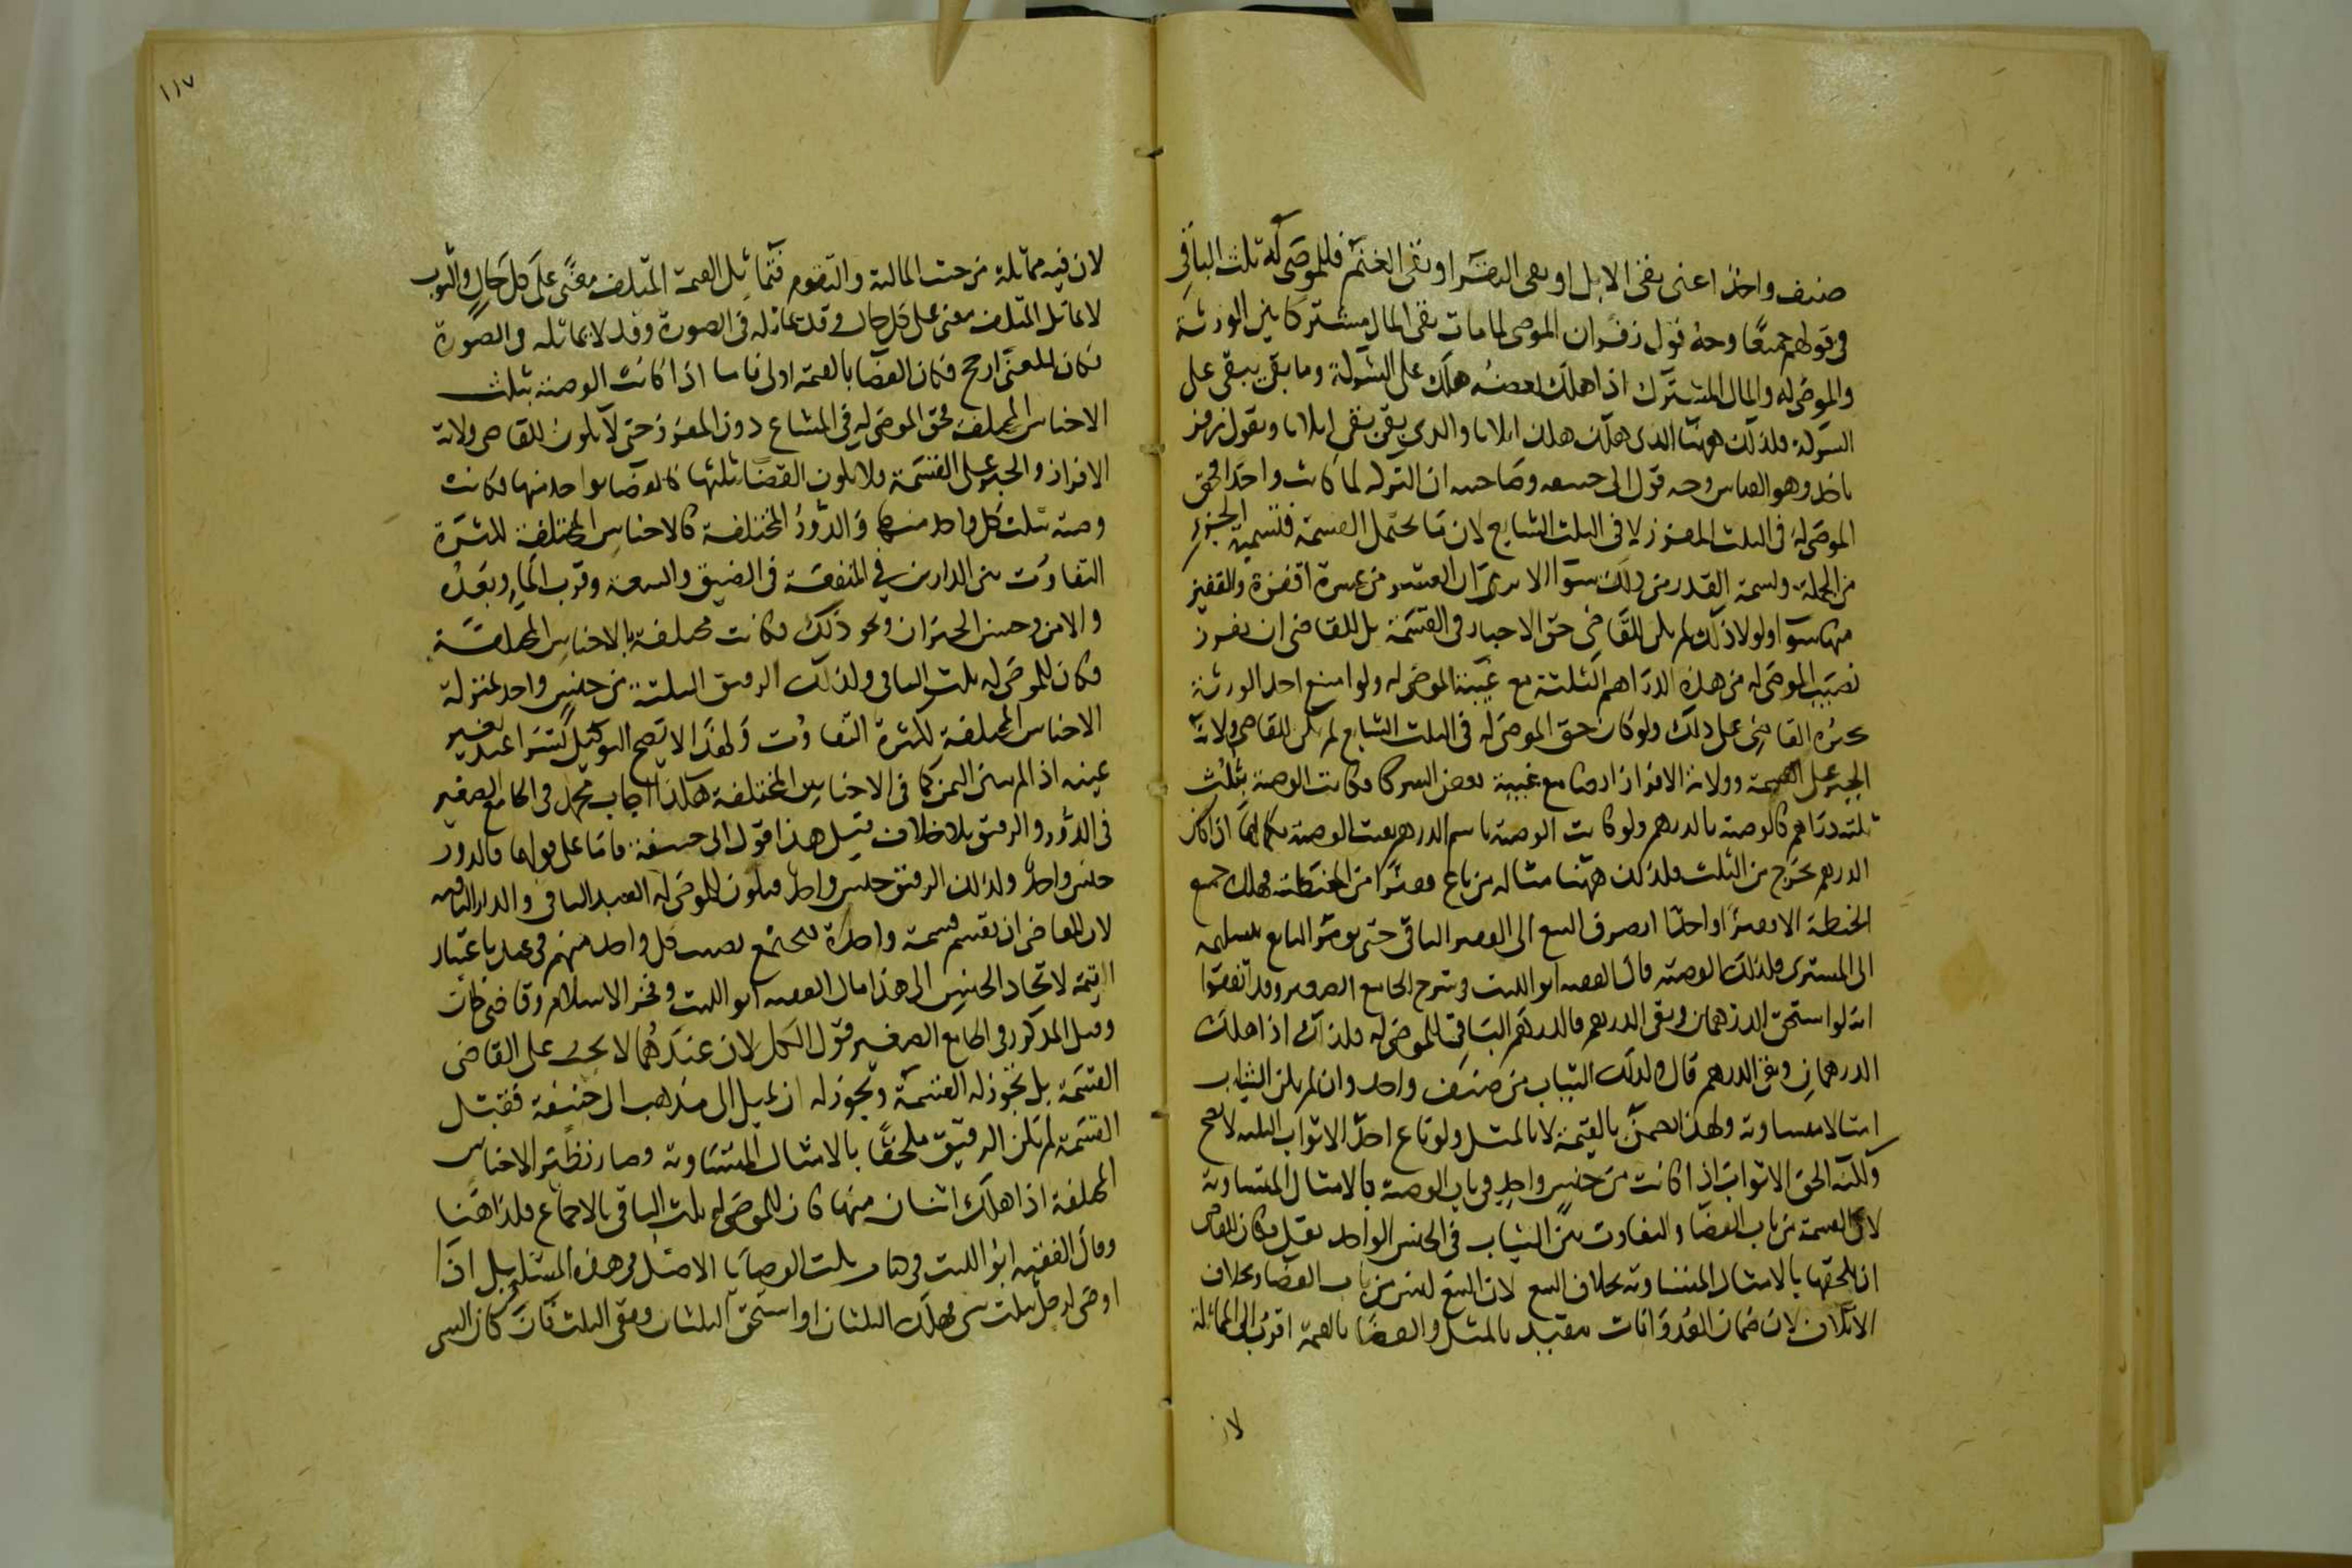 صنف واحد اعنى بقى الابل او بقى البقر او بقى الغنم فللموصى له ثلث الباقى
فى قولهم جميعًا وجه قول زفر ان الموصى لما مات بقى المال مشتركا بين الورثة
والموصى له والمال المشترك اذا هلك بعضه هلك على الشركة وما بقى يبقى على
الشركة فلذلك ههنا الذى هلك هلك اثلاثا والذى بقى بقى اثلاثا وبقول زفر
ناخذ وهو القياس وجه قول ابى حنيفه وصاحبيه ان التركه لما كانت واحدا فحق
الموصى له فى الثلث المفرز لا فى الثلث الشايع لان ما يحتمل القسمة فتسمية الجزء
من الجملة وتسمية القدر من ذلك سوا الا يرى ان العشر من عشرة اقفزة والقفيز
منها سوا ولولا ذلك لم يكن للقاضى حق الاجبار فى القسمة بل للقاضى ان يفرز
نصيب الموصى له من هذه الدراهم الثلثة مع غيبة الموصى له ولو امتنع احد الورثة
يجبره القاضى على ذلك ولو كان حق الموصى له فى الثلث الشايع لم يكن للقاضى ولاية
الجبر على القسمة وولاية الافراز ايضا مع غيبة بعض الشركا فكانت الوصية بثلث
ثلثه دراهم كالوصية بالدرهم ولو كانت الوصية باسم الدرهم بقيت الوصية بكمالها اذا كان
الدرهم يخرج من الثلث فلذلك ههنا مثاله من باع قفيزًا من الحنطة فهلك جميع
الحنطة الا قفيزًا واحدًا انصرف البيع الى القفيز الباقى حتى يومر البايع بتسليمه
الى المشترى فلذلك الوصية قال الفقيه ابو الليث فى شرح الجامع الصغير وقد اتفقوا
انه لو استحق الدرهمان وبقى الدرهم فالدرهم الباقى للموصى له فلذلك اذا هلك
الدرهمان وبقى الدرهم قال وكذلك الثياب من صنف واحد وان لم يكن الثياب
امثالا متساوية ولهذا يضمن بالقيمة لا بالمثل ولو باع احد الاثواب الثلثه لا يصح
ولكنه الحق الاثواب اذا كانت من جنس واحد فى باب الوصية بالامثال المتساوية
لان القسمة من باب القضا والتفاوت بين الثياب فى الجنس الواحد يقل فكان للقاضى
ان يلحقها بالامثال المتساوية بخلاف البيع لان البيع ليس من باب القضا وبخلاف
الاتلاف لان ضمان العدوانات مقيد بالمثل والقضا بالقيمة اقرب الى المماثلة
لان
١١٧
لان فيه مماثلة من حيث المالية والتقوم فتماثل القيمة المتلف معنًى على كل حال والثوب
لا يماثل المتلف معنى على كل حال وقد يماثله فى الصورة وقد لا يماثله فى الصورة
فكان المعنى ارجح فكان القضا بالقيمة اولى فاما اذا كانت الوصية بثلث
الاجناس المختلفة فحق الموصى له فى المشاع دون المفرز حتى لا يكون للقاضى ولاية
الافراز والجبر على القسمة ولا يكون القضا بثلثها كالقضا بواحد منها فكانت
وصية بثلث كل واحد منها والدور المختلفة كالاجناس المختلفة لكثرة
التفاوت بين الدارين فى المنفعة فى الضيق والسعة وقرب الما وبعده
والامن وحسن الجيران ونحو ذلك فكانت مختلفة كالاجناس المختلفة
فكان للموصى له ثلث الباقى ولذلك الرقيق الثلثة من جنس واحد بمنزلة
الاجناس المختلفة لكثرة التفاوت ولهذا لا يصح التوكيل بشرا عبد بغير
عينه اذا لم يبين الثمن كما فى الاجناس المختلفة هكذا اجاب محمد فى الجامع الصغير
فى الدور والرقيق بلا خلاف قيل هذا قول ابى حنيفة فاما على قولهما فالدور
جنس واحد ولذلك الرقيق جنس واحد فيكون للموصى له العبد الباقى والدار الباقيه
لان للقاضى ان يقسم قسمة واحدة فيجتمع نصيب كل واحد منهم فى عبد باعتبار
القيمة لاتحاد الجنس الى هذا مال الفقيه ابو الليث وفخر الاسلام وقاضى خان
وقيل المذكور فى الجامع الصغير قول الكل لان عندهما لا يجب على القاضى
القسمة بل يجوز له القسمة ويجوز له ان يميل الى مذهب ابى حنيفة فقبل
القسمة لم يكن الرقيق ملحقًا بالامثال المتساوية وصار نظير الاجناس
المختلفة اذا هلك اثنان منها كان للموصى له ثلث الباقى بالاجماع فلذا ههنا
وقال الفقيه ابو الليث فى كتاب نكت الوصايا الاصل فى هذه المسئلة قيل اذا
اوصى لرجل بثلث شى فهلك الثلثان او استحق الثلثان وبقى الثلث فان كان الشى